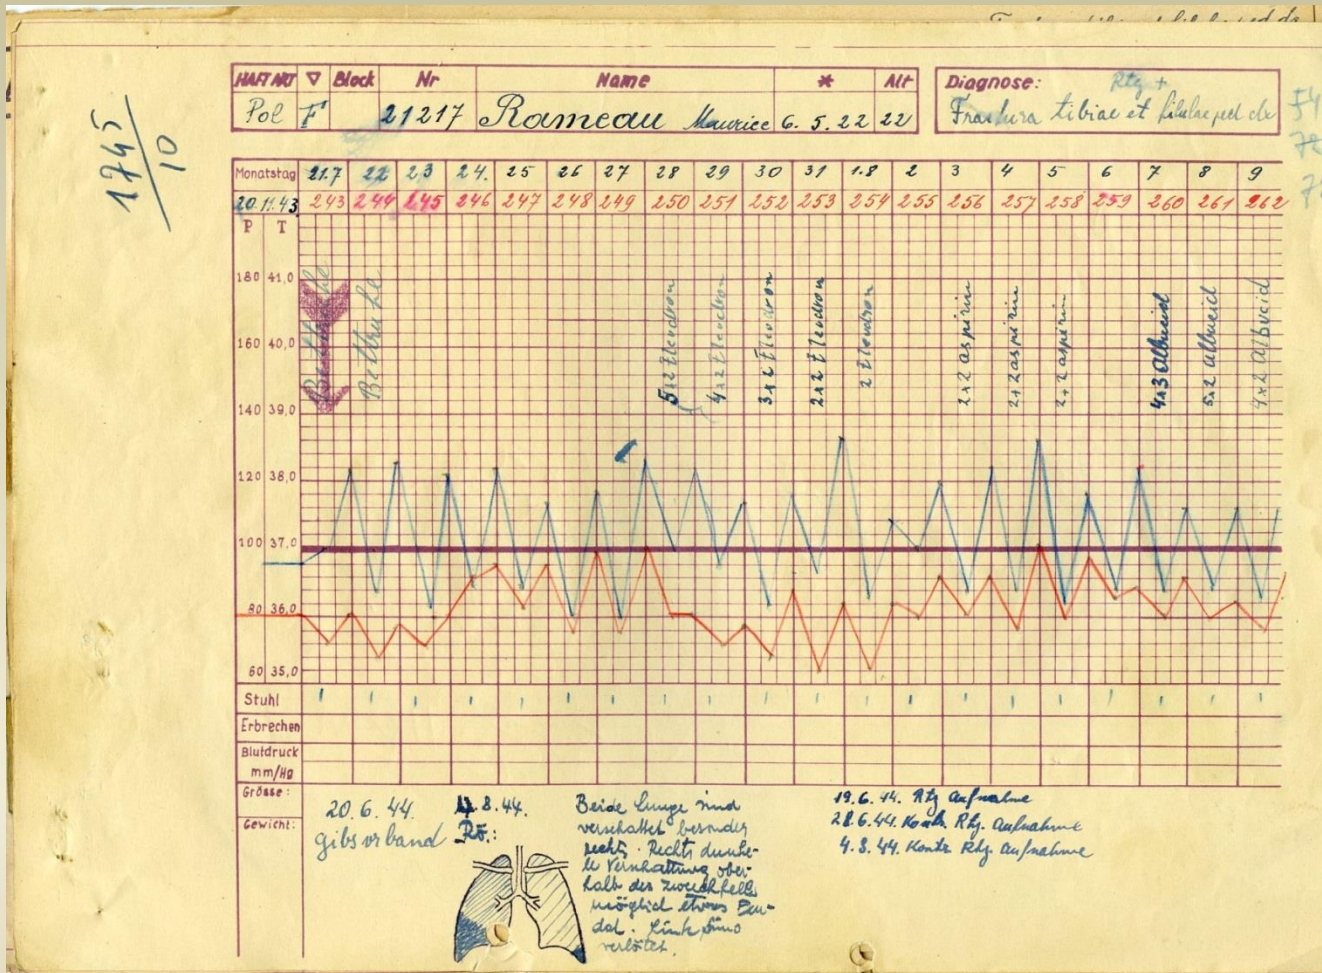 1745
10
HAFTART ▽ Block Nr Name * Alt
Pol F 21217 Rameau Maurice 6. 5. 22 22
Diagnose: Rtg +
Fraktura tibiae et
Monatstag 21.7 22 23 24. 25 26 27 28 29 30 31 1.8 2 3 4 5 6 7 8 9
20.11.43 243 244 245 246 247 248 249 250 251 252 253 254 255 256 257 258 259 260 261 262
P T
180 41,0
160 40,0
140 39,0
120 38,0
100 37,0
80 36,0
60 35,0
Bettruhe
Bettruhe
5x2 Eleudron
4x2 Eleudron
3x2 Eleudron
2x2 Eleudron
2 Eleudron
2x2 aspirin
2x2 aspirin
2x2 aspirin
4x3 Albucid
5x2 albucid
4x2 Albucid
Stuhl
Erbrechen
Blutdruck
mm/Hg
Grösse:
Gewicht:
20. 6. 44.
gibsverband
4.8.44.
Rö.:
Beide Lunge sind
verschattet besonders
rechts. Rechts dunke-
le Verschattung ober-
halb des zwerchfells
möglich etwas Exu-
dat. Link Sinus
verlötet.
19.6.44. Rtg Aufnahme
28.6.44. Kontr. Rtg. Aufnahme
4.8.44. Kontr Rtg Aufnahme
54